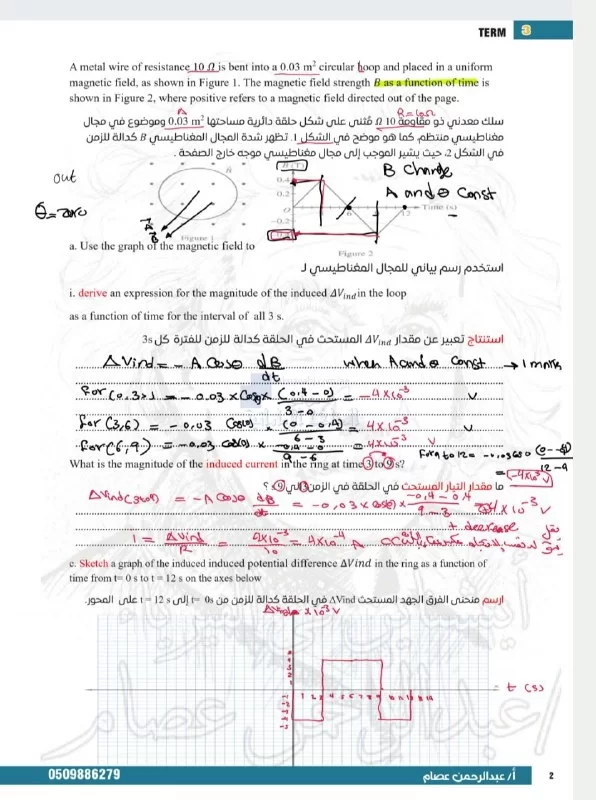 TERM 3
A metal wire of resistance 10 Ω is bent into a 0.03 m² circular hoop and placed in a uniform
magnetic field, as shown in Figure 1. The magnetic field strength B as a function of time is
shown in Figure 2, where positive refers to a magnetic field directed out of the page.
A R=10Ω
سلك معدني ذو مقاومة 10 Ω مُثنى على شكل حلقة دائرية مساحتها 0.03 m² وموضوع في مجال
مغناطيسي منتظم، كما هو موضح في الشكل 1. تظهر شدة المجال المغناطيسي B كدالة للزمن
في الشكل 2، حيث يشير الموجب إلى مجال مغناطيسي موجه خارج الصفحة .
out
θ = zero
B
A
B
Figure 1
B (T)
0.4
0.2
0
-0.2
6
12
Time (s)
Figure 2
B change
A and θ const
a. Use the graph of the magnetic field to
استخدم رسم بياني للمجال المغناطيسي لـ
i. derive an expression for the magnitude of the induced ΔVind in the loop
as a function of time for the interval of all 3 s.
استنتاج تعبير عن مقدار ΔVind المستحث في الحلقة كدالة للزمن للفترة كل 3s
ΔVind = - A cosθ dB/dt when A and θ const → 1 mark
For (0,3) = - 0.03 × cos0 × (0,4 - 0)/3 - 0 = -4 × 10⁻³ V
For (3,6) = - 0,03 cos(0) × (0 - 0,4)/6 - 3 = 4 × 10⁻³ V
For (6,9) = - 0.03 cos(0) × -0,4 - 0/9 - 6 = 4 × 10⁻³ V
For 9 to 12 = -0,03 cos0 (0 - -0.4)/12 - 9
= (-4 × 10⁻³ V)
What is the magnitude of the induced current in the ring at time 3 to 9 s?
ما مقدار التيار المستحث في الحلقة في الزمن 3 إلي 9 ؟
ΔVind (3 to 9) = - A cosθ dB/dt = - 0,03 × cos(0) × -0,4 - 0,4/9 - 3 = 4 × 10⁻³ V
+ decrease
I = ΔVind/R = 4×10⁻³/10 = 4×10⁻⁴ A
c. Sketch a graph of the induced induced potential difference ΔVind in the ring as a function of
time from t= 0 s to t = 12 s on the axes below
ارسم منحنى الفرق الجهد المستحث ΔVind في الحلقة كدالة للزمن من t= 0s إلى t = 12 s على المحور.
ΔVind × 10⁻³ V
1 2 3 4 5 6 7 8 9 10 11 12 13 14
t (s)
0509886279
أ/ عبدالرحمن عصام
2